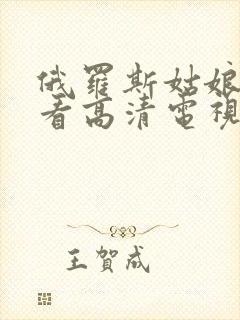 俄羅斯姑娘
看高清電視
王賀成